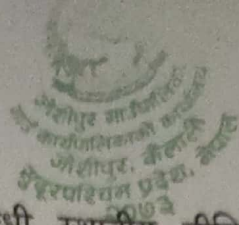 जोशीपुर गाउँपालिका
गाउँ कार्यपालिकाको कार्यालय
जोशीपुर, कैलाली
सुदूरपश्चिम प्रदेश, नेपाल
२०७३